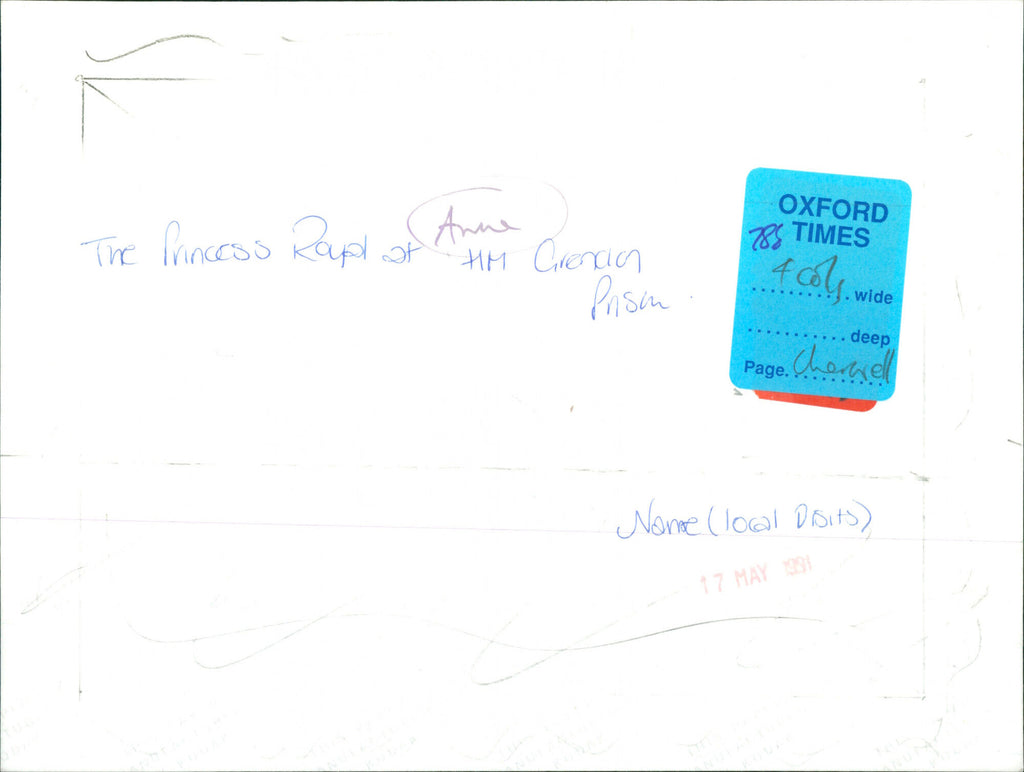 Anne
The Princess Royal at HM Grendon
Prison.
OXFORD
TIMES
785
4 cols wide
deep
Page Cherwell
Name (local Visits)
17 MAY 1991